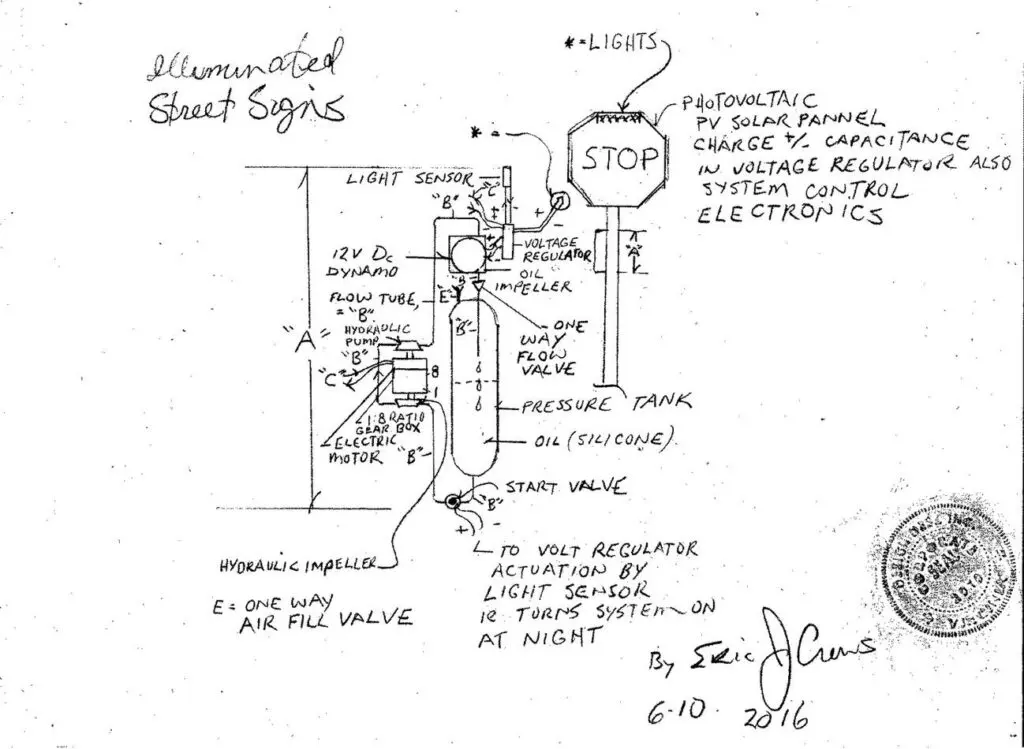 Illuminated
Street Signs
* = LIGHTS
* =
STOP
PHOTOVOLTAIC
PV SOLAR PANNEL
CHARGE +/- CAPACITANCE
IN VOLTAGE REGULATOR ALSO
SYSTEM CONTROL
ELECTRONICS
"A"
LIGHT SENSOR
"C"
"B"
+
-
+
-
VOLTAGE
REGULATOR
12V DC
DYNAMO
OIL
IMPELLER
"B"
"E"
FLOW TUBE,
= "B"
HYDRAULIC
PUMP
"B"
"B"
ONE
WAY
FLOW
VALVE
"A"
"C"
8
1
1:8 RATIO
GEAR BOX
ELECTRIC
MOTOR
"B"
PRESSURE TANK
OIL (SILICONE)
START VALVE
"B"
+
-
HYDRAULIC IMPELLER
E = ONE WAY
AIR FILL VALVE
TO VOLT REGULATOR
ACTUATION BY
LIGHT SENSOR
IR TURNS SYSTEM ON
AT NIGHT
By Eric J Crews
6-10. 2016
CORPORATE
SEAL
2010